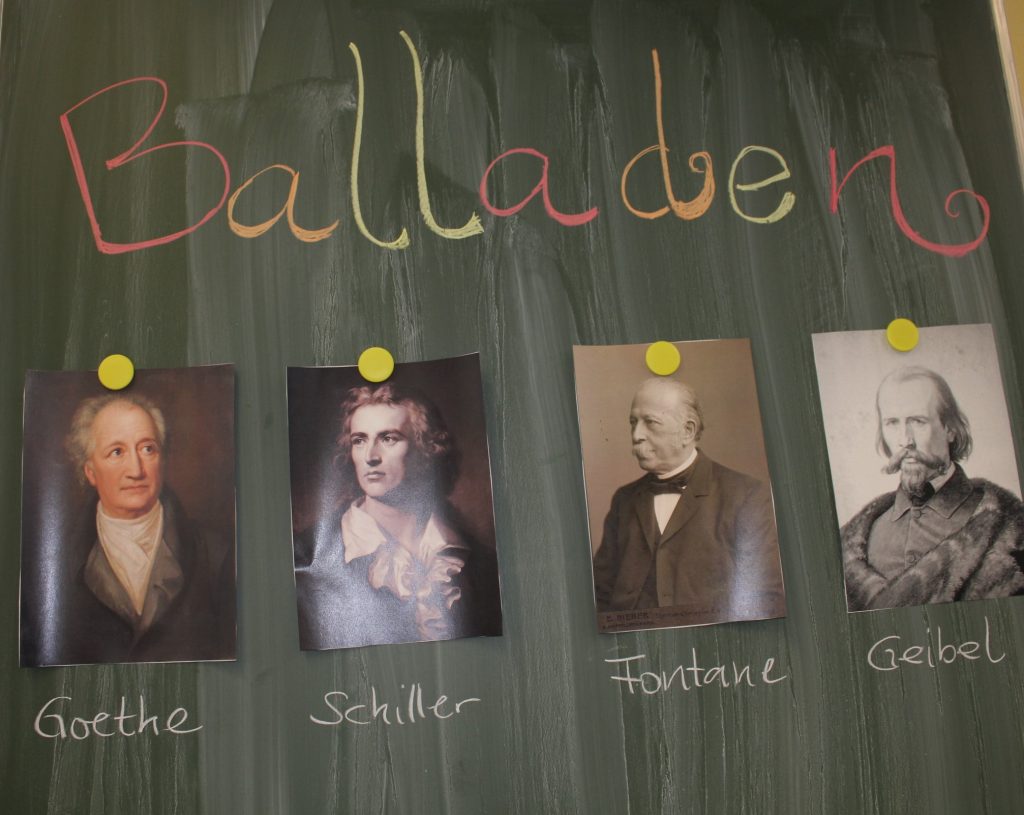 Balladen
Goethe Schiller Fontane Geibel
E. BIEBER